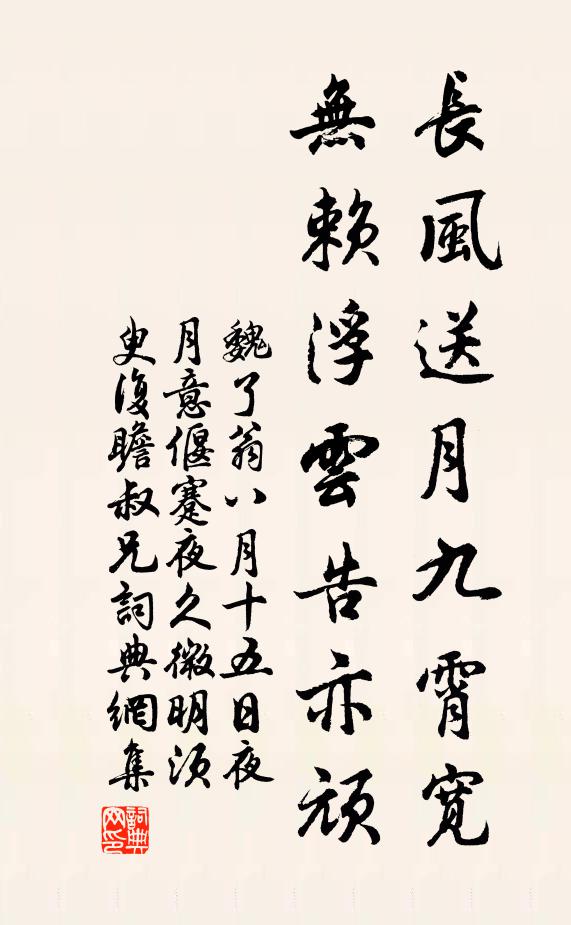 長風送月九霄寬
無賴浮雲告亦頑
魏了翁八月十五日夜
月意偃蹇夜久微明須
臾復瞻叔兄詞典網集
詞典
网印